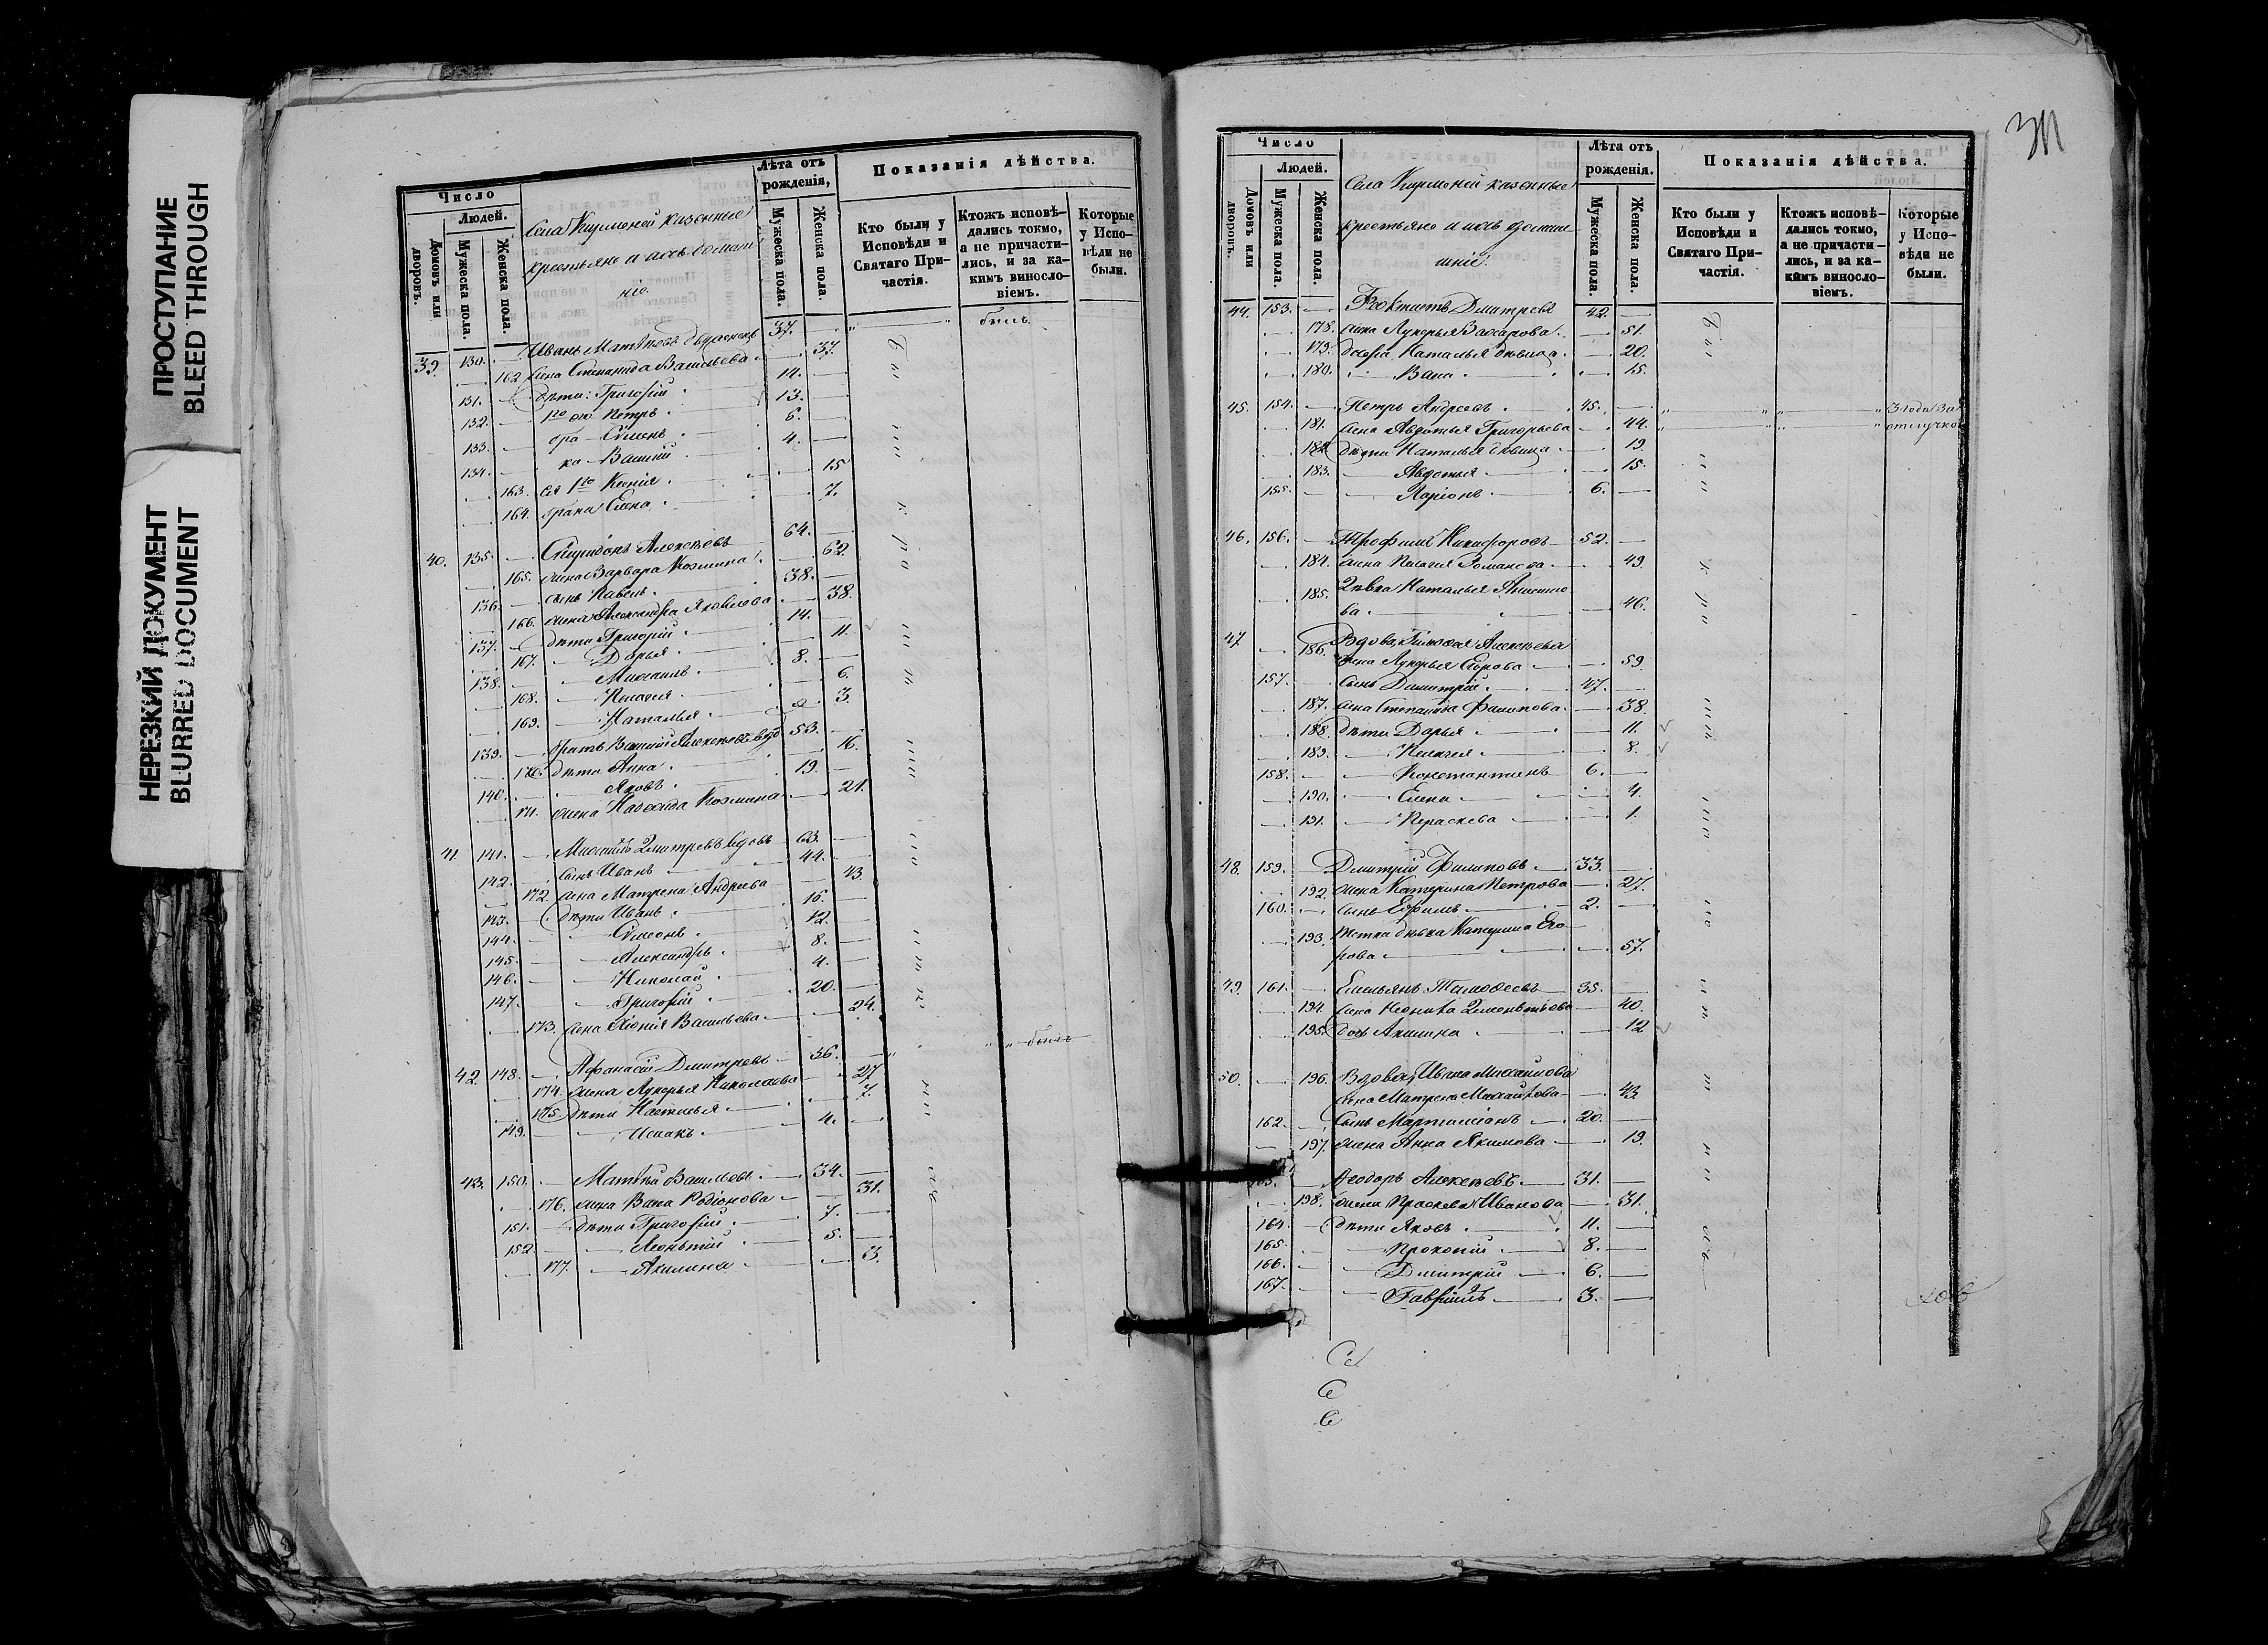 ПРОСТУПАНИЕ
BLEED THROUGH
НЕРЕЗКИЙ ДОКУМЕНТ
BLURRED DOCUMENT
Число
Людей.
Домовъ или дворовъ.
Мужеска пола.
Женска пола.
Села казенные
крестьяне и ихъ домаш
ніе
Лѣта отъ рожденія,
Мужеска пола.
Женска пола.
Показанія дѣйства.
Кто были у Исповѣди и Святаго Причастія.
Ктожъ исповѣдались токмо, а не причастились, и за какимъ винословіемъ.
Которые у Исповѣди не были.
39. 130. Иванъ 37. былъ
162 жена Степанида Васильева 37.
131. дѣти: Григорій 14.
132. 1го Петръ 13.
133. Сѵмеонъ 6.
134. Василій 4.
163. 1го Ксенія 15
164. Елена 7.
40. 135. Спиридонъ Алексѣевъ 64.
165. жена Варвара Козмина 62
136. сынъ Павелъ 38.
166. жена Александра Яковлева 38.
137. дѣти Григорій 14.
167. Дарья 11.
138. Михаилъ 8.
168. Пелагея 6.
169. Наталья 3.
139. братъ Василій Алексѣевъ вдо 53.
170. дѣти Анна 16.
140. Яковъ 19.
171. жена Надежда Козмина 21.
41. 141. Михаилъ Димитревъ вдовъ 63.
142. сынъ Иванъ 44.
172. жена Матрена Андреева 43.
143. дѣти Иванъ 16.
144. Сѵмеонъ 12.
145. Александръ 8.
146. Николай 4.
147. Григорій 20.
173. жена Васильева 24.
42. 148. Афанасій Дмитревъ 36. былъ
174. жена Лукерья Николаева 27
175. дѣти Настасья 7.
149. Исаакъ 4.
43. 150. Матвѣй Васильевъ 34.
176. жена Васса Родіонова 31.
151. дѣти Григорій 7.
152. Леонтій 5.
177. Акилина 3.
311
Число
Людей.
Домовъ или дворовъ.
Мужеска пола.
Женска пола.
Села казенные
крестьяне и ихъ домаш
ніе.
Лѣта отъ рожденія.
Мужеска пола.
Женска пола.
Показанія дѣйства.
Кто были у Исповѣди и Святаго Причастія.
Ктожъ исповѣдались токмо, а не причастились, и за какимъ винословіемъ.
Которые у Исповѣди не были.
44. 153. Ѳеоктистъ Дмитревъ 42.
178. жена Лукерья Захарова 51.
179. дочери Наталья дѣвица 20.
180. Васса 15.
45. 154. Петръ Андреевъ 45. 3 года за
181. жена Авдотья Григорьева 44. отлучкою
182. дѣти Наталья дѣвица 19.
183. Авдотья 15.
155. Ларіонъ 6.
46. 156. Трофимъ Никифоровъ 52.
184. жена Пелагея Романова 49.
185. Дѣвка Наталья
ва 46.
47. 186. Вдова, Николая Алексѣева
жена Лукерья Егорова 59.
157. сынъ Димитрій 47.
187. жена Степанида Филипова 38.
188. дѣти Дарья 11.
189. Пелагея 8.
158. Константинъ 6.
190. Елена 4.
191. Параскева 1.
48. 159. Дмитрій Филиповъ 33.
192. жена Катерина Петрова 27.
160. сынъ Ефимъ 2.
193. тетка дѣвка Катерина Его
рова 57.
49. 161. Емельянъ Тимоѳеевъ 35.
194. жена Леонтьева 40.
195. дочь Акилина 12
50. 196. Вдова, Ивана Михайлова
жена Матрена Михайлова 43
162. сынъ Мартиніанъ 20.
197. жена Анна Якимова 19.
163. Ѳеодоръ Алексѣевъ 31.
198. жена Прасковья Иванова 31.
164. дѣти Яковъ 11.
165. Прокопій 8.
166. Дмитрій 6.
167. Гавріилъ 3.